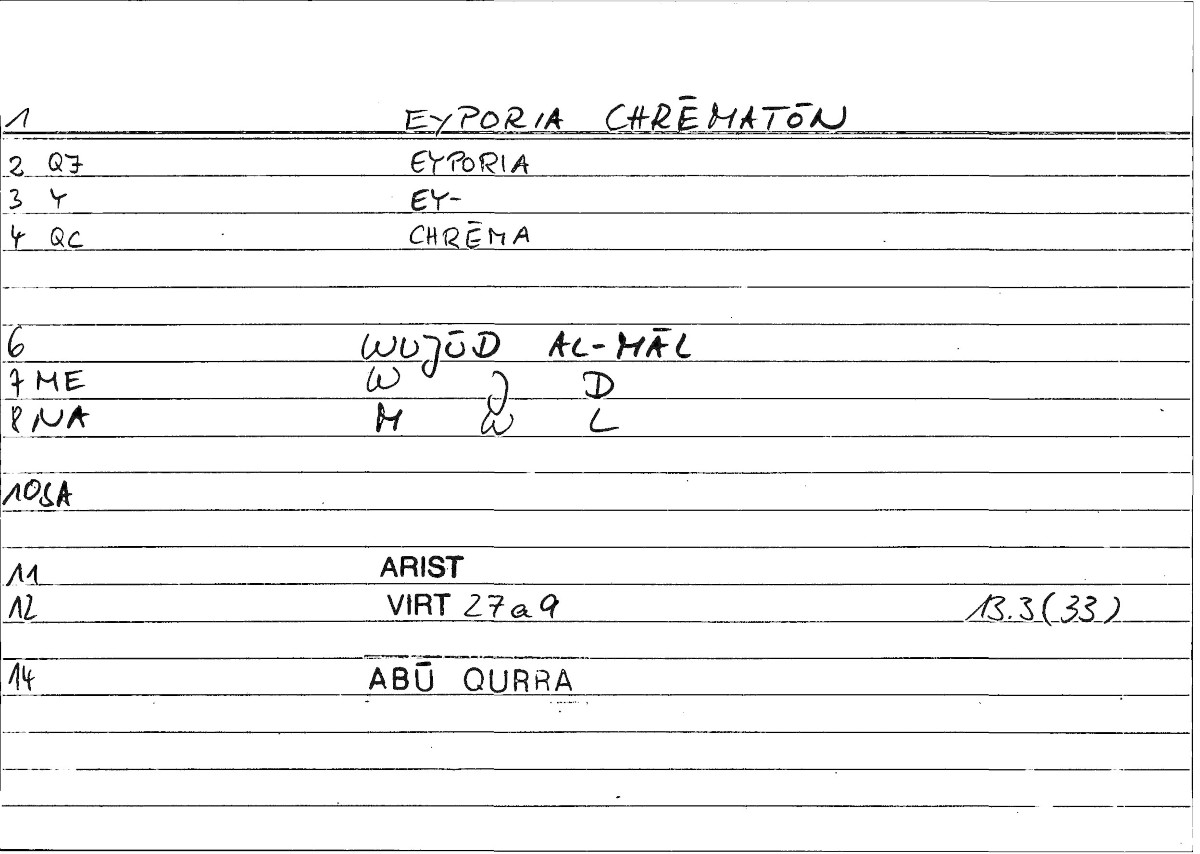 1 EYPORIA CHRĒMATŌN
2 Q7 EYPORIA
3 Y EY-
4 QC CHRĒMA
6 WUJŪD AL-MĀL
7 ME W J D
8 NA M W L
10 SA
11 ARIST
12 VIRT 27a9 13.3(33)
14 ABŪ QURRA